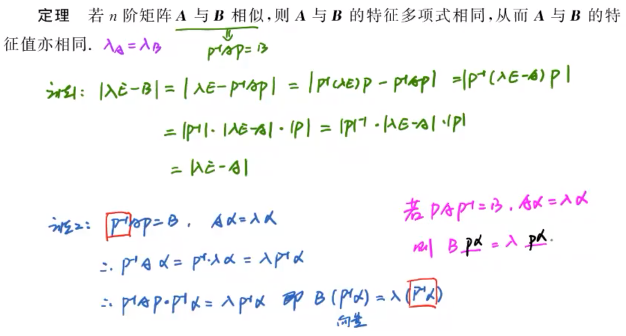 定理 若 n 阶矩阵 A 与 B 相似,则 A 与 B 的特征多项式相同,从而 A 与 B 的特
征值亦相同. λ_A=λ_B P⁻¹AP=B
证1: |λE-B| = |λE-P⁻¹AP| = |P⁻¹(λE)P - P⁻¹AP| = |P⁻¹(λE-A)P|
= |P⁻¹|·|λE-A|·|P| = |P|⁻¹·|λE-A|·|P|
= |λE-A|
证2: P⁻¹AP=B, Aα=λα
∴ P⁻¹Aα = P⁻¹·λα = λP⁻¹α
∴ P⁻¹AP·P⁻¹α = λP⁻¹α 即 B(P⁻¹α) = λ(P⁻¹α)
向量
若 PAP⁻¹=B, Aα=λα
则 B Pα = λ Pα.